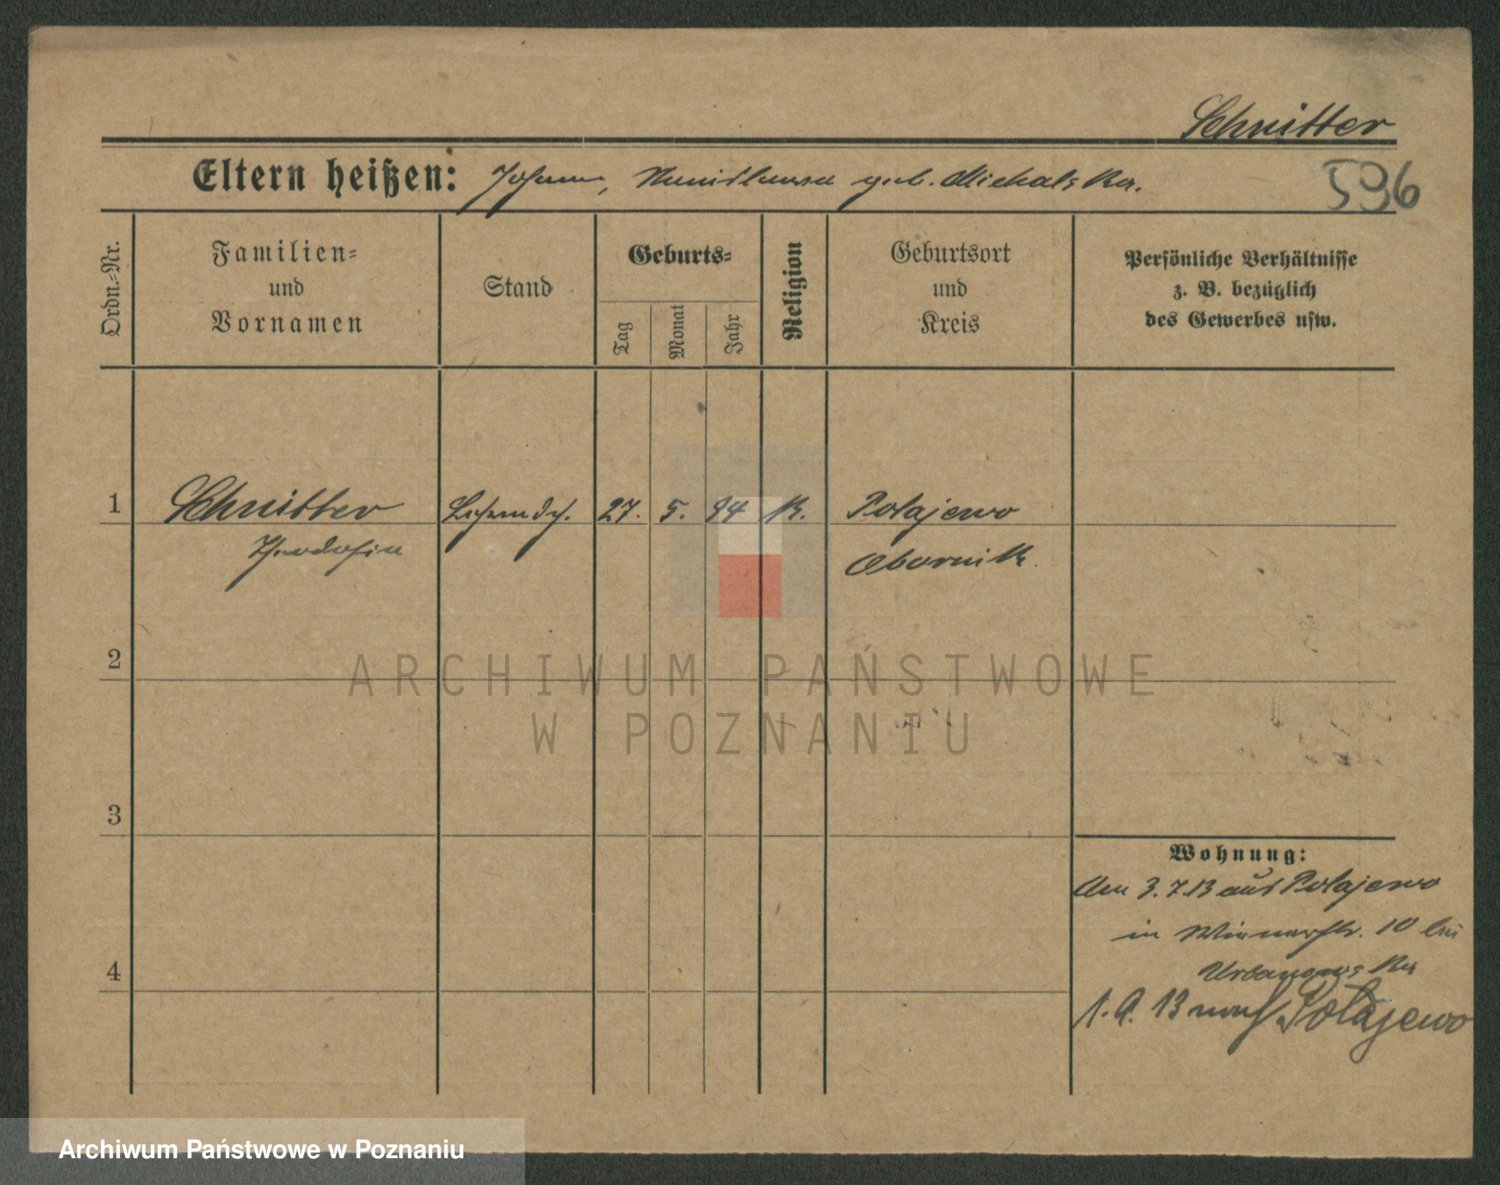 Schnitter
Eltern heißen: Johann, geb. Michalska.
596
Ordn.-Nr.
Familien-
und
Vornamen
Stand
Geburts-
Tag
Monat
Jahr
Religion
Geburtsort
und
Kreis
Persönliche Verhältnisse
z. B. bezüglich
des Gewerbes usw.
1 Schnitter 27. 5. 94 K. Polajewo
Theodosia Obornik.
2
ARCHIWUM PAŃSTWOWE
W POZNANIU
3
Wohnung:
Am 3.7.13 aus Polajewo
in Wienerstr. 10 bei
Urbanowska
4
1.9.13 nach Polajewo
Archiwum Państwowe w Poznaniu